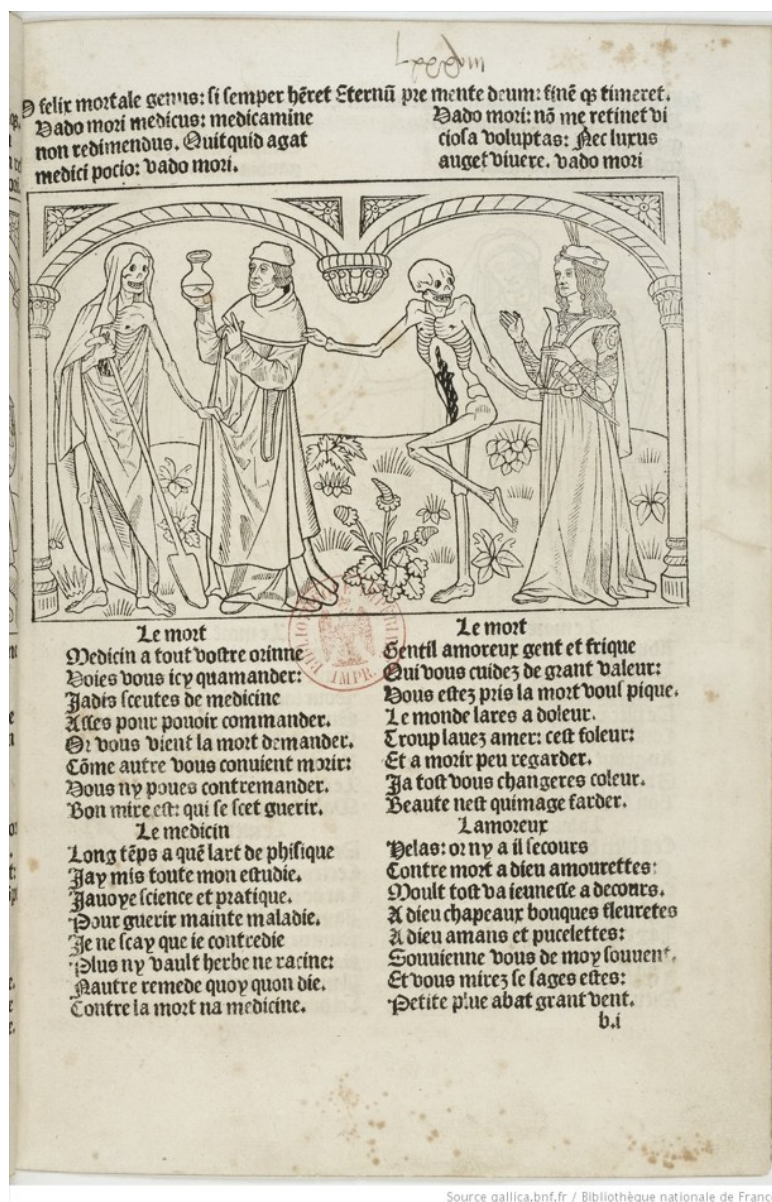 O felix mortale genus: si semper hēret Eternū pre mente deum: finē qȝ timeret.
Vado mori medicus: medicamine
non redimendus. Quitquid agat
medici pocio: vado mori.
Vado mori: nō me retinet vi
ciosa voluptas: Nec luxus
auget viuere. vado mori
Le mort
Medicin a tout vostre orinne
Voies vous icy quamander:
Jadis sceutes de medicine
Asses pour pouoir commander.
Or vous vient la mort demander.
Cōme autre vous conuient morir:
Vous ny poues contremander.
Bon mire est: qui se scet guerir.
Le medicin
Long tēps a quē lart de phisique
Jay mis toute mon estudie.
Jauoye science et pratique.
Pour guerir mainte maladie.
Je ne scay que ie contredie
Plus ny vault herbe ne racine:
Nautre remede quoy quon die.
Contre la mort na medicine.
Le mort
Gentil amoreux gent et frique
Qui vous cuidez de grant valeur:
Vous estez pris la mort vous pique.
Le monde lares a doleur.
Troup lauez amer: cest foleur:
Et a morir peu regarder.
Ja tost vous changeres coleur.
Beaute nest quimage farder.
Lamoreux
Helas: or ny a il secours
Contre mort a dieu amourettes:
Moult tost va ieunesse a decours.
A dieu chapeaux bouques fleuretes
A dieu amans et pucelettes:
Souuienne vous de moy souuent.
Et vous mirez se sages estes:
Petite plue abat grant vent.
b.i
IMPR.
Source gallica.bnf.fr / Bibliothèque nationale de France